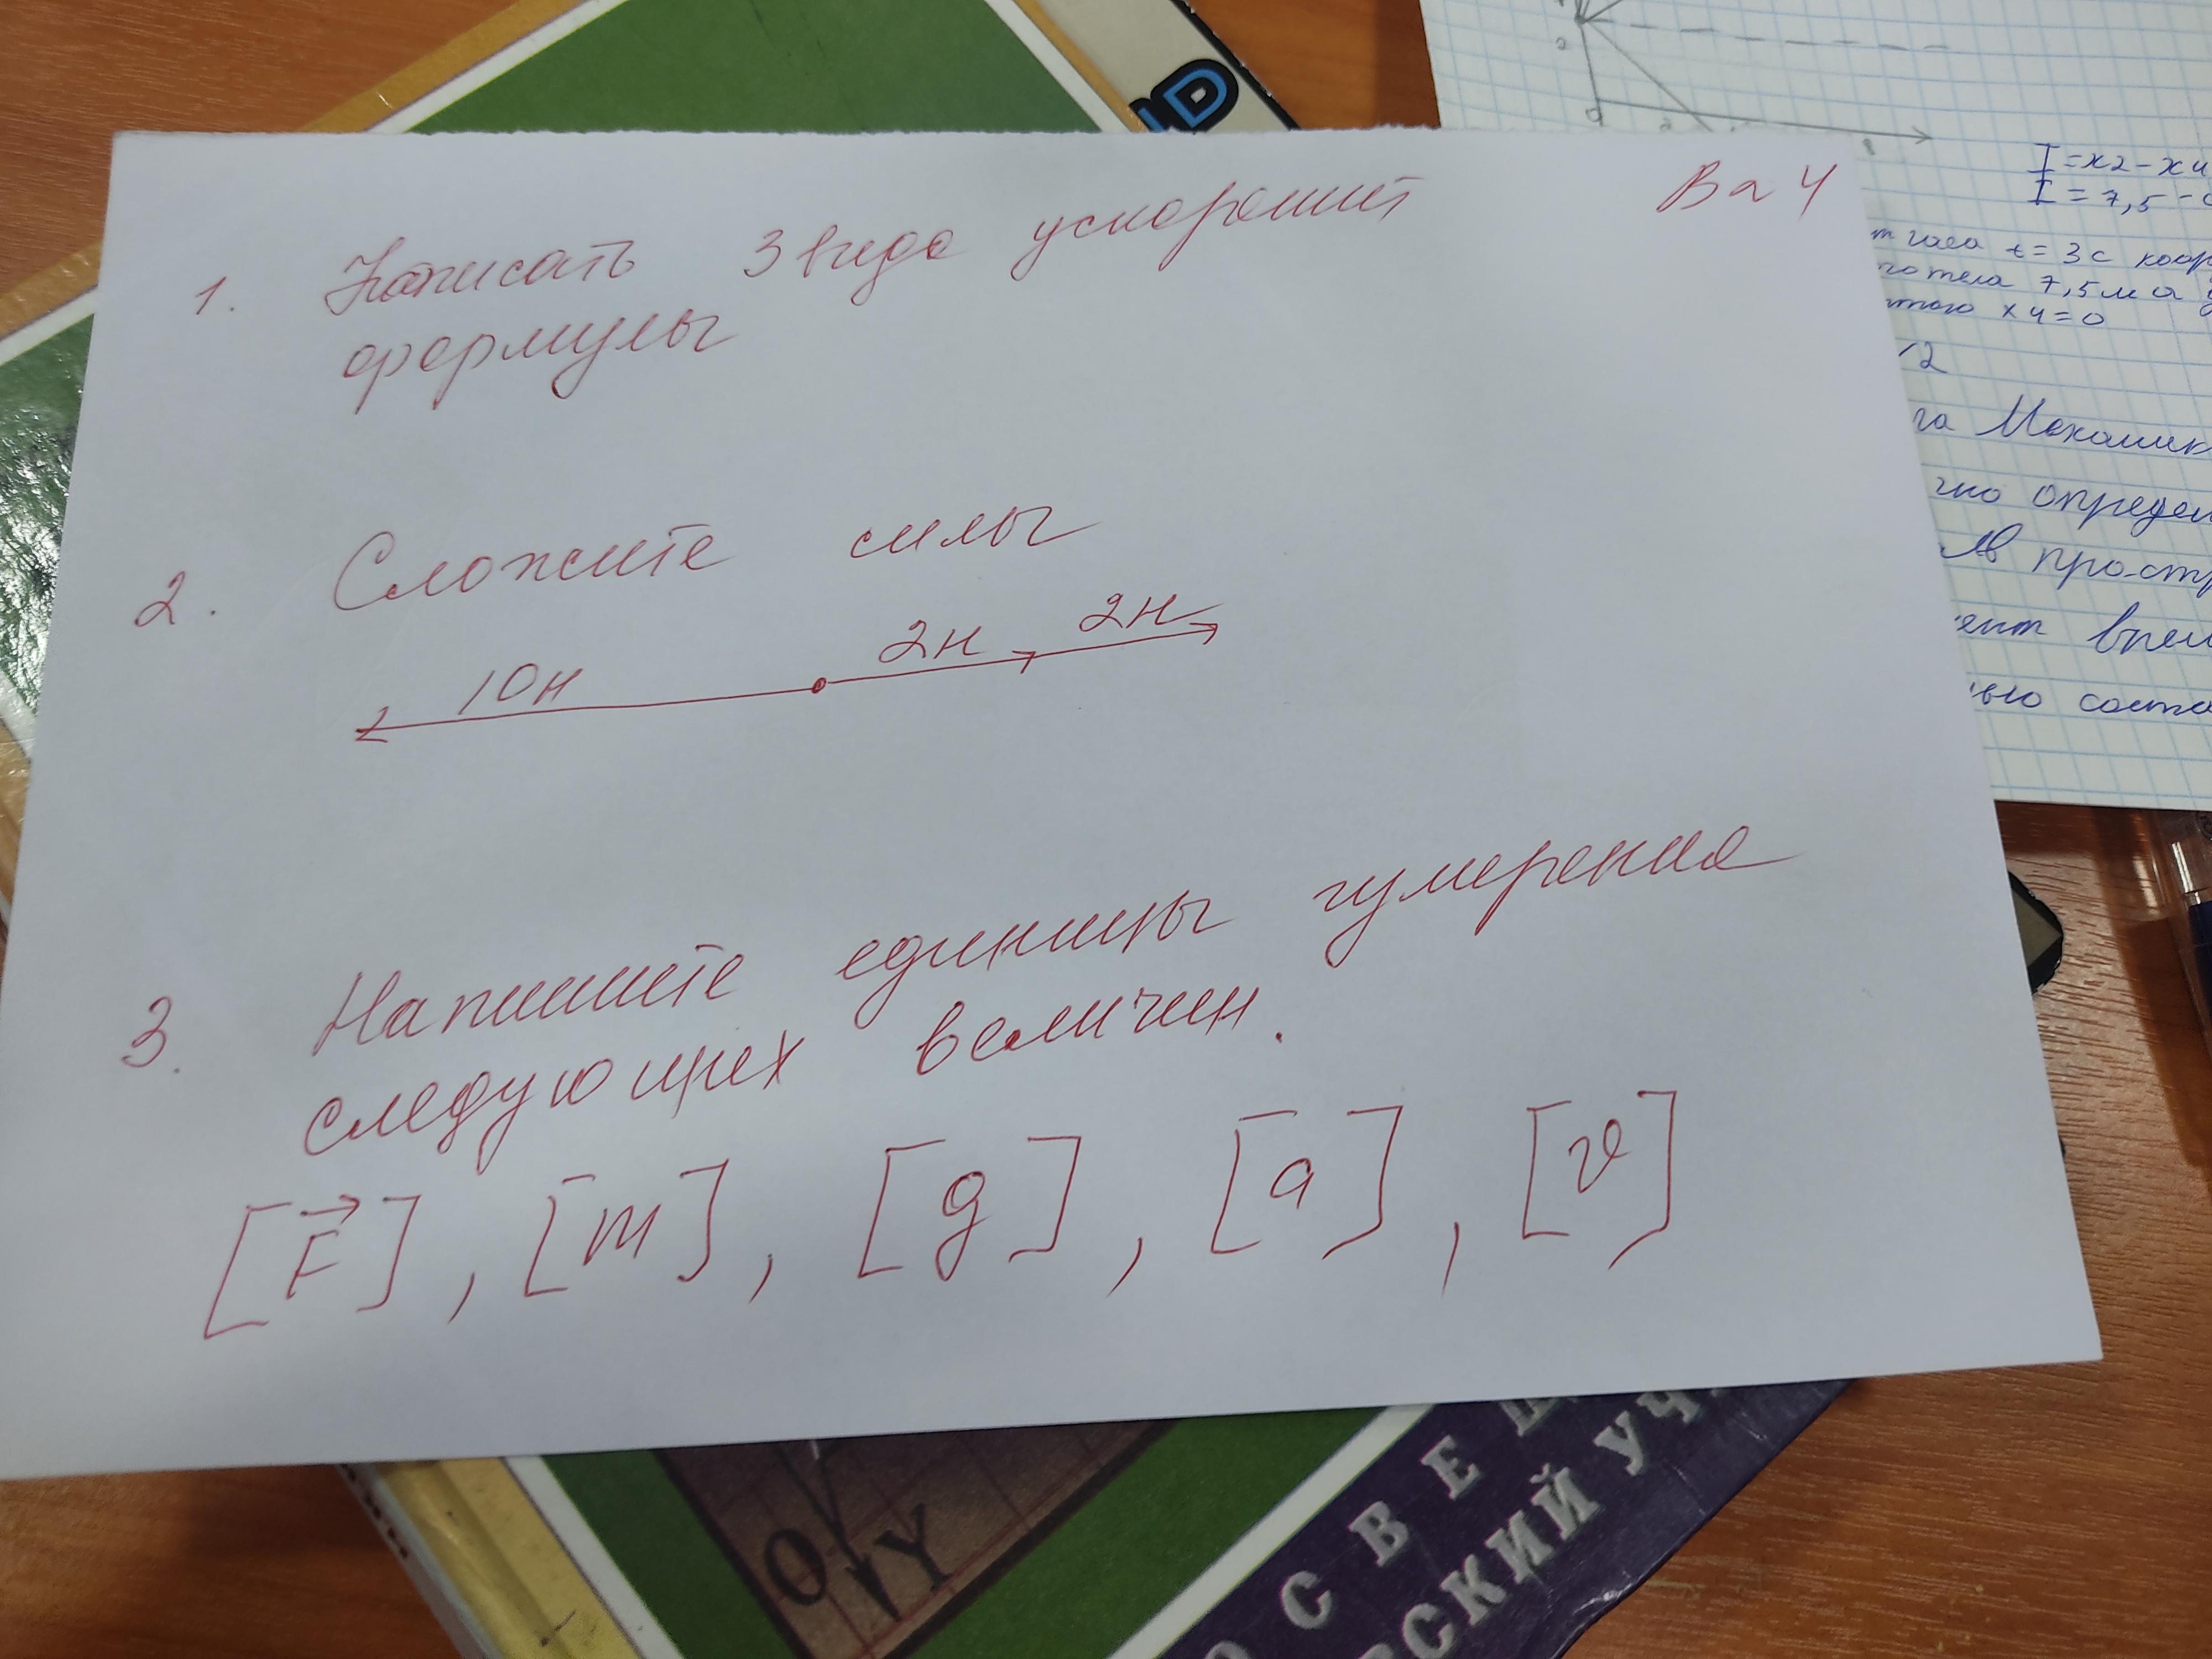 Ва 4
1. Написать 3 вида ускорений
формулы
2. Сложите силы
10н 2н 2н
3. Напишите единицы измерения
следующих величин.
[F⃗], [m], [g], [a], [v]
I = x2 - x4
I = 7,5 -
t = 3 с коор
тела 7,5 м а
x4 = 0
12
Механик
определ
в прост
вре
соста
D
О С В Е
СКИЙ УЧ
O Y